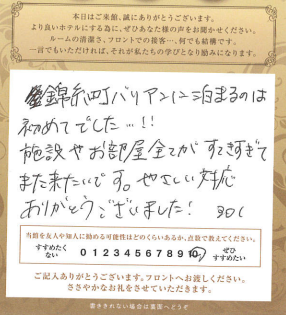 本日はご来館、誠にありがとうございます。
より良いホテルにする為に、ぜひあなた様の声をお聞かせください。
ルームの清潔さ、フロントでの接客…、何でも結構です。
一言でもいただければ、それが私たちの学びとなり励みになります。
錦糸町バリアンに泊まるのは
初めてでした…!!
施設やお部屋全てがすてきすぎて
また来たいです。やさしい対応
ありがとうございました!
当館を友人や知人に勧める可能性はどのくらいあるか、点数で教えてください。
すすめたくない 0 1 2 3 4 5 6 7 8 9 10 ぜひすすめたい
ご記入ありがとうございます。フロントへお渡しください。
ささやかなお礼をさせていただきます。
書ききれない場合は裏面へどうぞ